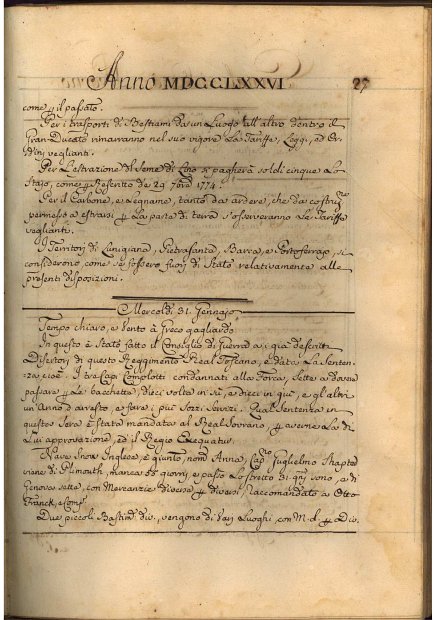 Anno MDCCLXXVI. 27
come p il passato.
Per i trasporti di Bestiami da un Luogo all'altro dentro il
Gran Ducato rimarranno nel suo vigore La Tariffa, Leggi, ed Or-
dini veglianti.
Per L'estrazione del Seme di Lino si pagherà soldi cinque Lo
Stajo, come p Rescritto de 29 7bre 1774.
Per il Carbone, e Legname, tanto da ardere, che da costruz.ne
permesso a estrarsi p La parte di terra s'osserveranno Le Tariffe
veglianti.
I Territorj di Lunigiana, Pietrasanta, Barga, e Portoferrajo, si
considerono come se fossero fuori di Stato relativamente alle
presenti disposizioni.
Mercoldì 31. Gennajo
Tempo chiaro, e Vento à Greco gagliardo
In questo è Stato fatto il Consiglio di Guerra a i già descritti
Disertori di questo Reggimento Real Toscano, e data La Senten-
za cioè. I tre Capi Complotti condannati alla Forca, Sette a dover
passare p Le bacchette, Dieci volte in sù, e dieci in giù, e gl'altri
un'Anno d'arresto, e fare i più Sozzi Servizi. Qual Sentenza in
questa Sera è stata mandata al Real Sovrano, p averne La di
Lui approvazione, ed il Regio Exequatur.
Nave Snow Inglese, è giunto, nom. Anna, Cap. Guglielmo
viene di Plimouth, manca 55 giorni, e passò Lo stretto 31. gni sono, e di
Genova sette, con Mercanzie diverse p diversi Raccomandato a Otto
Franck, e Comp.
Due piccoli Bastim. div. vengono di varj Luoghi, con M. d. p Div.